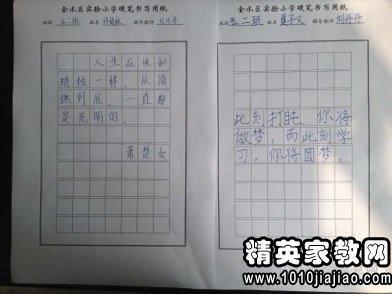 金水区实验小学硬笔书写用纸
班级 五二班 姓名 辅导教师
人生应该如
蜡烛一样，从顶
燃到底，一直都
是光明的。
萧楚女
金水区实验小学硬笔书写用纸
班级 五二班 姓名 辅导教师 刘丹丹
此刻打盹，你将
做梦，而此刻学
习，你将圆梦。
精英家教网
www.1010jiajiao.com